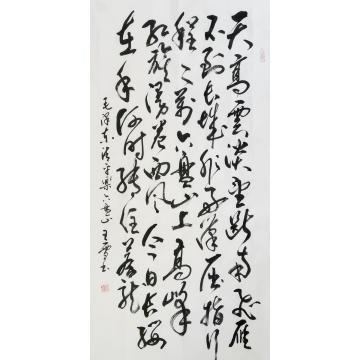 天高雲淡望斷南飛雁
不到長城非好漢屈指行
程二萬六盤山上高峰
紅旗漫卷西風今日長纓
在手何時縛住蒼龍
毛澤東清平樂六盤山 王書